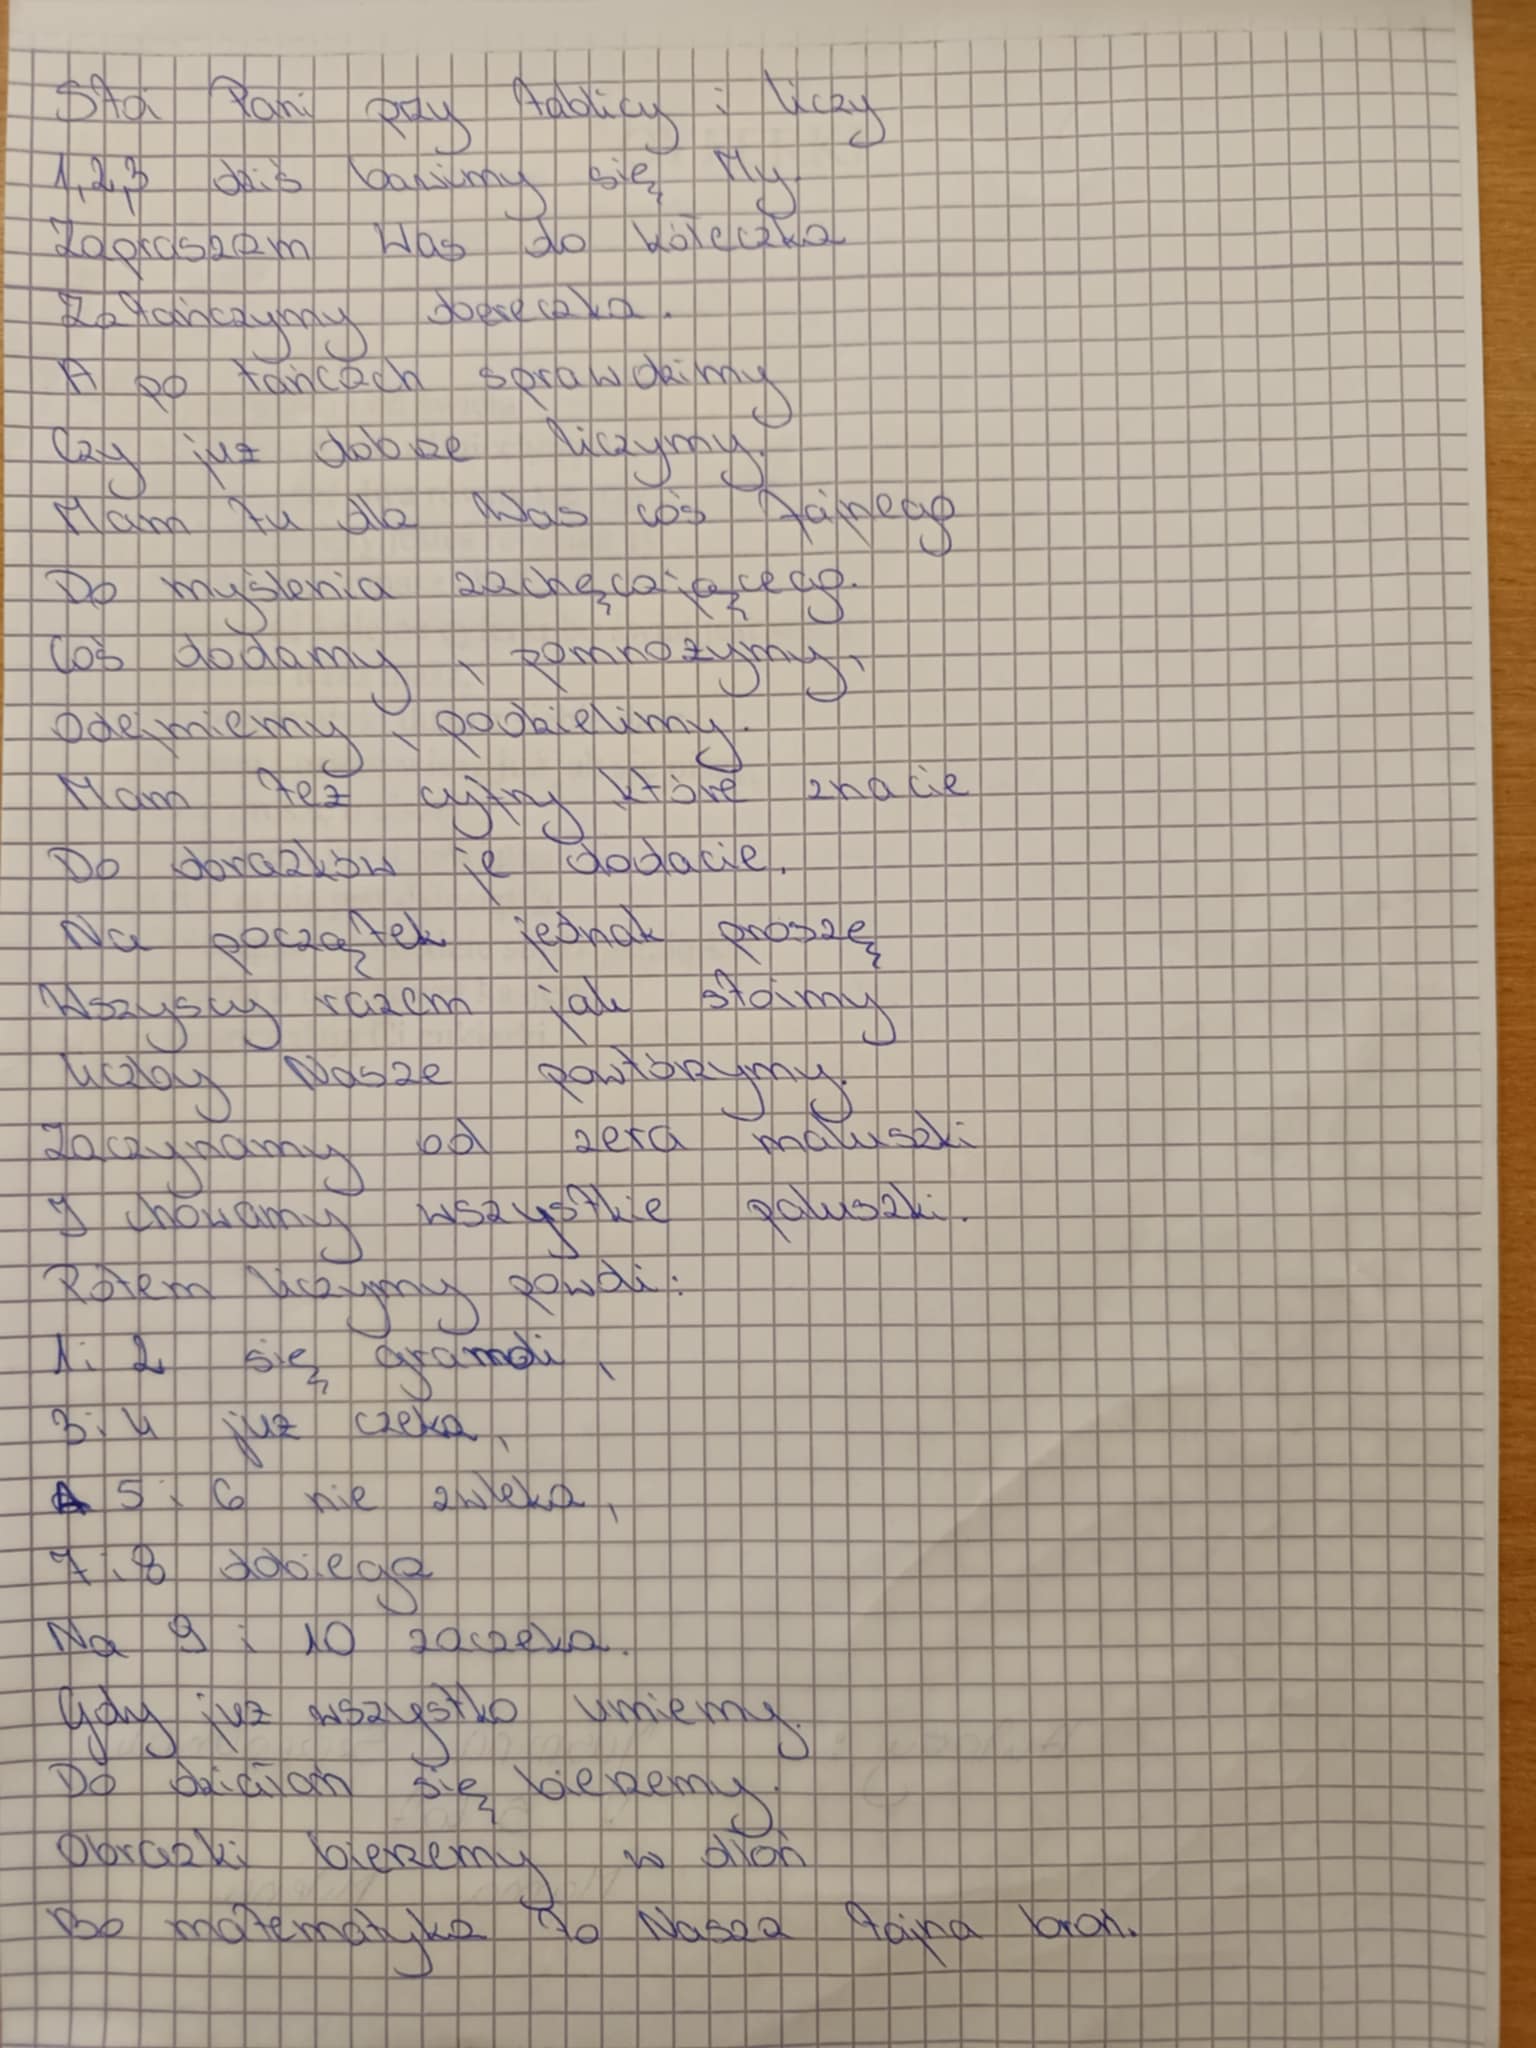 Stoi Pani przy tablicy i liczy
1,2,3 dziś bawimy się My.
Zapraszam Was do kółeczka
Zatańczymy obereczka.
A po tańcach sprawdzimy
Czy już dobrze liczymy.
Mam tu dla Was coś fajnego
Do myślenia zachęcającego.
Coś dodamy, pomnożymy,
odejmiemy, podzielimy.
Mam też cyfry które znacie
Do obrazków je dodacie.
Na początek jednak proszę
Wszyscy razem jak stoimy
Liczby Nasze powtórzymy.
Zaczynamy od zera maluszki
I chowamy wszystkie paluszki.
Potem liczymy powoli:
1 i 2 się gramoli,
3 i 4 już czeka,
A 5 i 6 nie zwleka,
7 i 8 dobiega
Na 9 i 10 zaczeka.
Gdy już wszystko umiemy.
Do działań się bierzemy.
Obrazki bierzemy w dłoń
Bo matematyka to Nasza fajna broń.